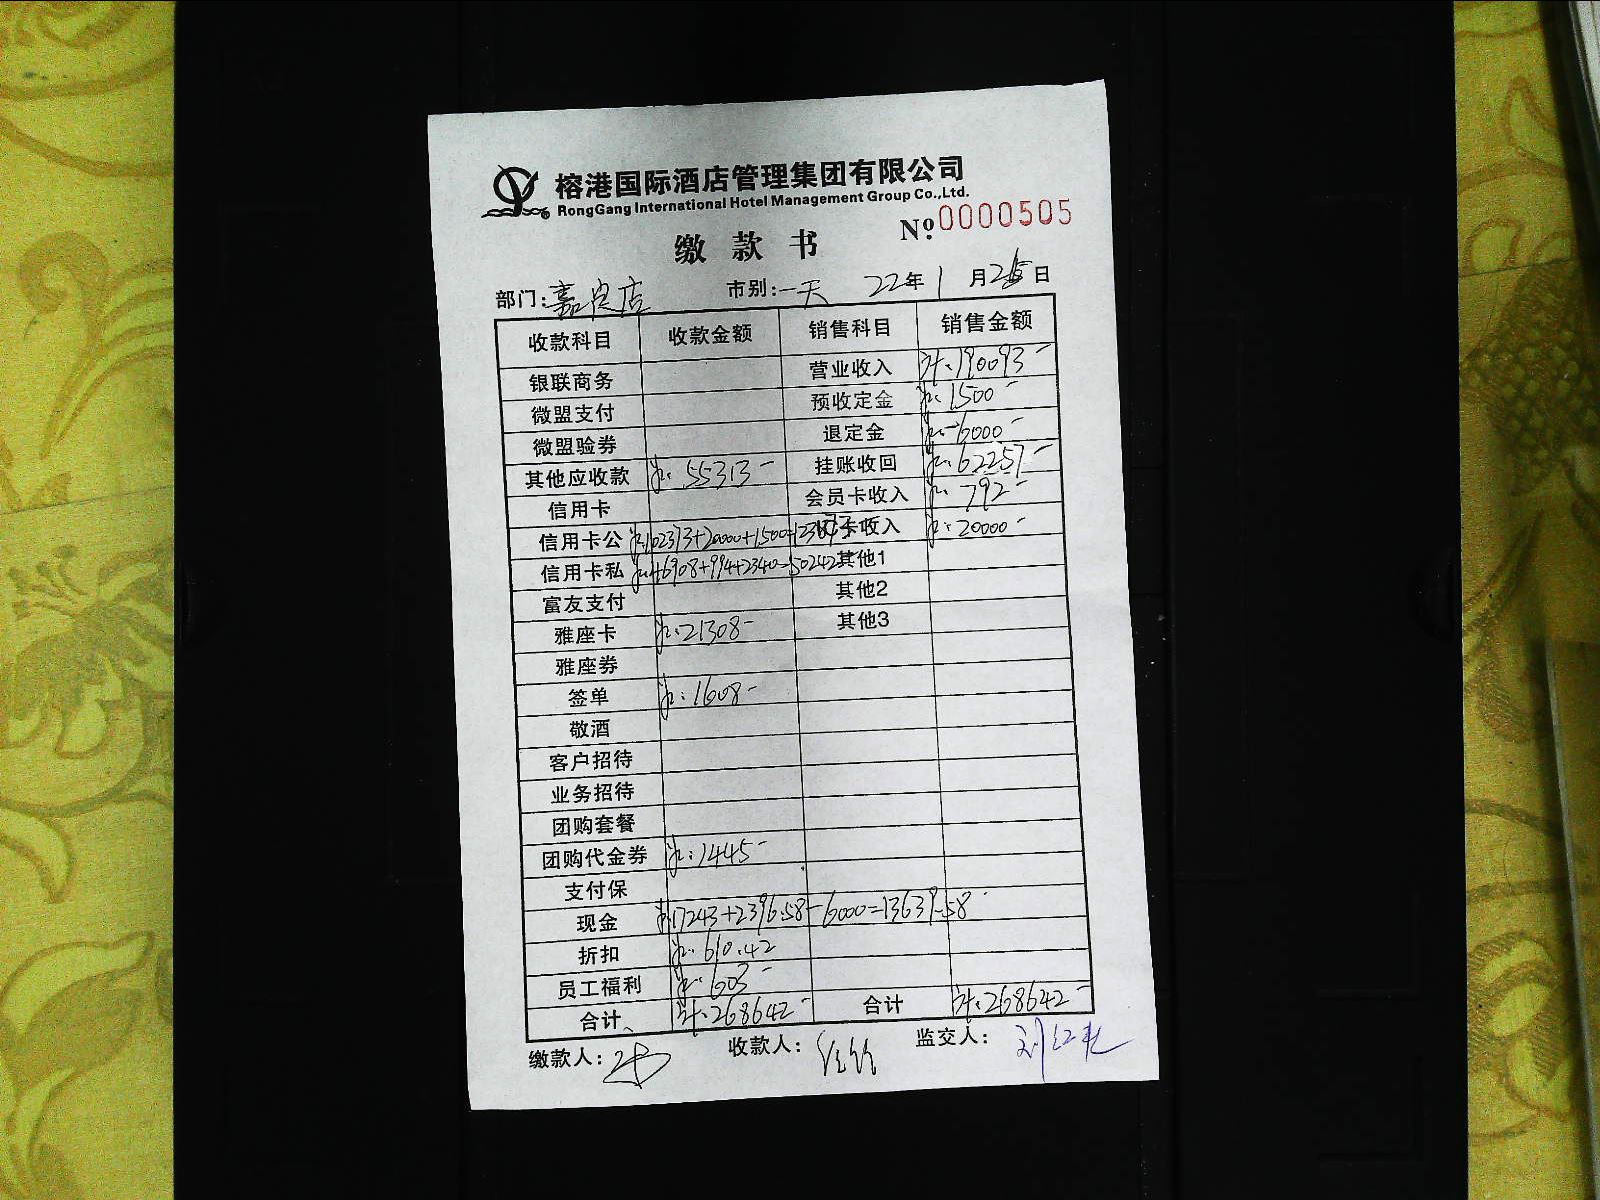 榕港国际酒店管理集团有限公司
RongGang International Hotel Management Group Co.,Ltd.
缴款书 №0000505
部门:嘉定店 市别:一天 22年1月25日
收款科目 收款金额 销售科目 销售金额
银联商务 营业收入 计:190093-
微盟支付 预收定金 计:1500-
微盟验券 退定金 计:-6000-
其他应收款 计:55313- 挂账收回 计:62257-
信用卡 会员卡收入 计:792-
信用卡公 计:102373+20000+1500=123873 卡收入 计:20000-
信用卡私 计:46908+994+2340=50242 其他1
富友支付 其他2
雅座卡 计:21308- 其他3
雅座券
签单 计:1608-
敬酒
客户招待
业务招待
团购套餐
团购代金券 计:1445-
支付保
现金 计:17243+2396.58-6000=13639.58
折扣 计:610.42
员工福利 计:603-
合计 计:268642- 合计 计:268642-
缴款人: 收款人: 监交人: